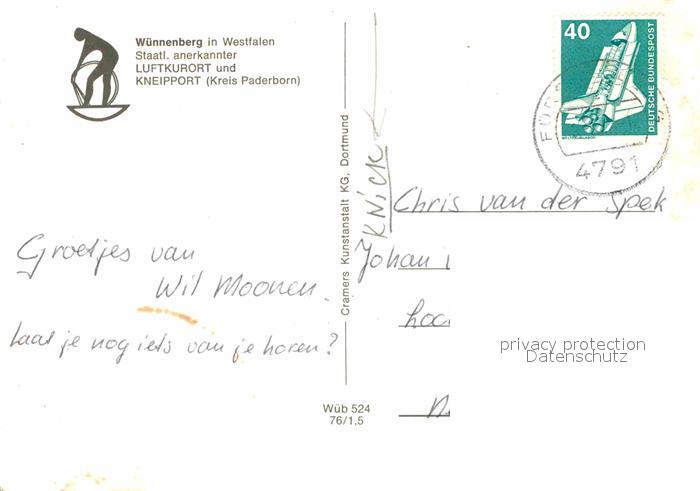 Wünnenberg in Westfalen
Staatl. anerkannter
LUFTKURORT und
KNEIPPORT (Kreis Paderborn)
Groetjes van
Wil Moonen.
Laat je nog iets van je horen?
Cramers Kunstanstalt KG, Dortmund
KNICK
Wüb 524
76/1,5
40
DEUTSCHE BUNDESPOST
4791
Chris van der Spek
Johan
privacy protection
Datenschutz